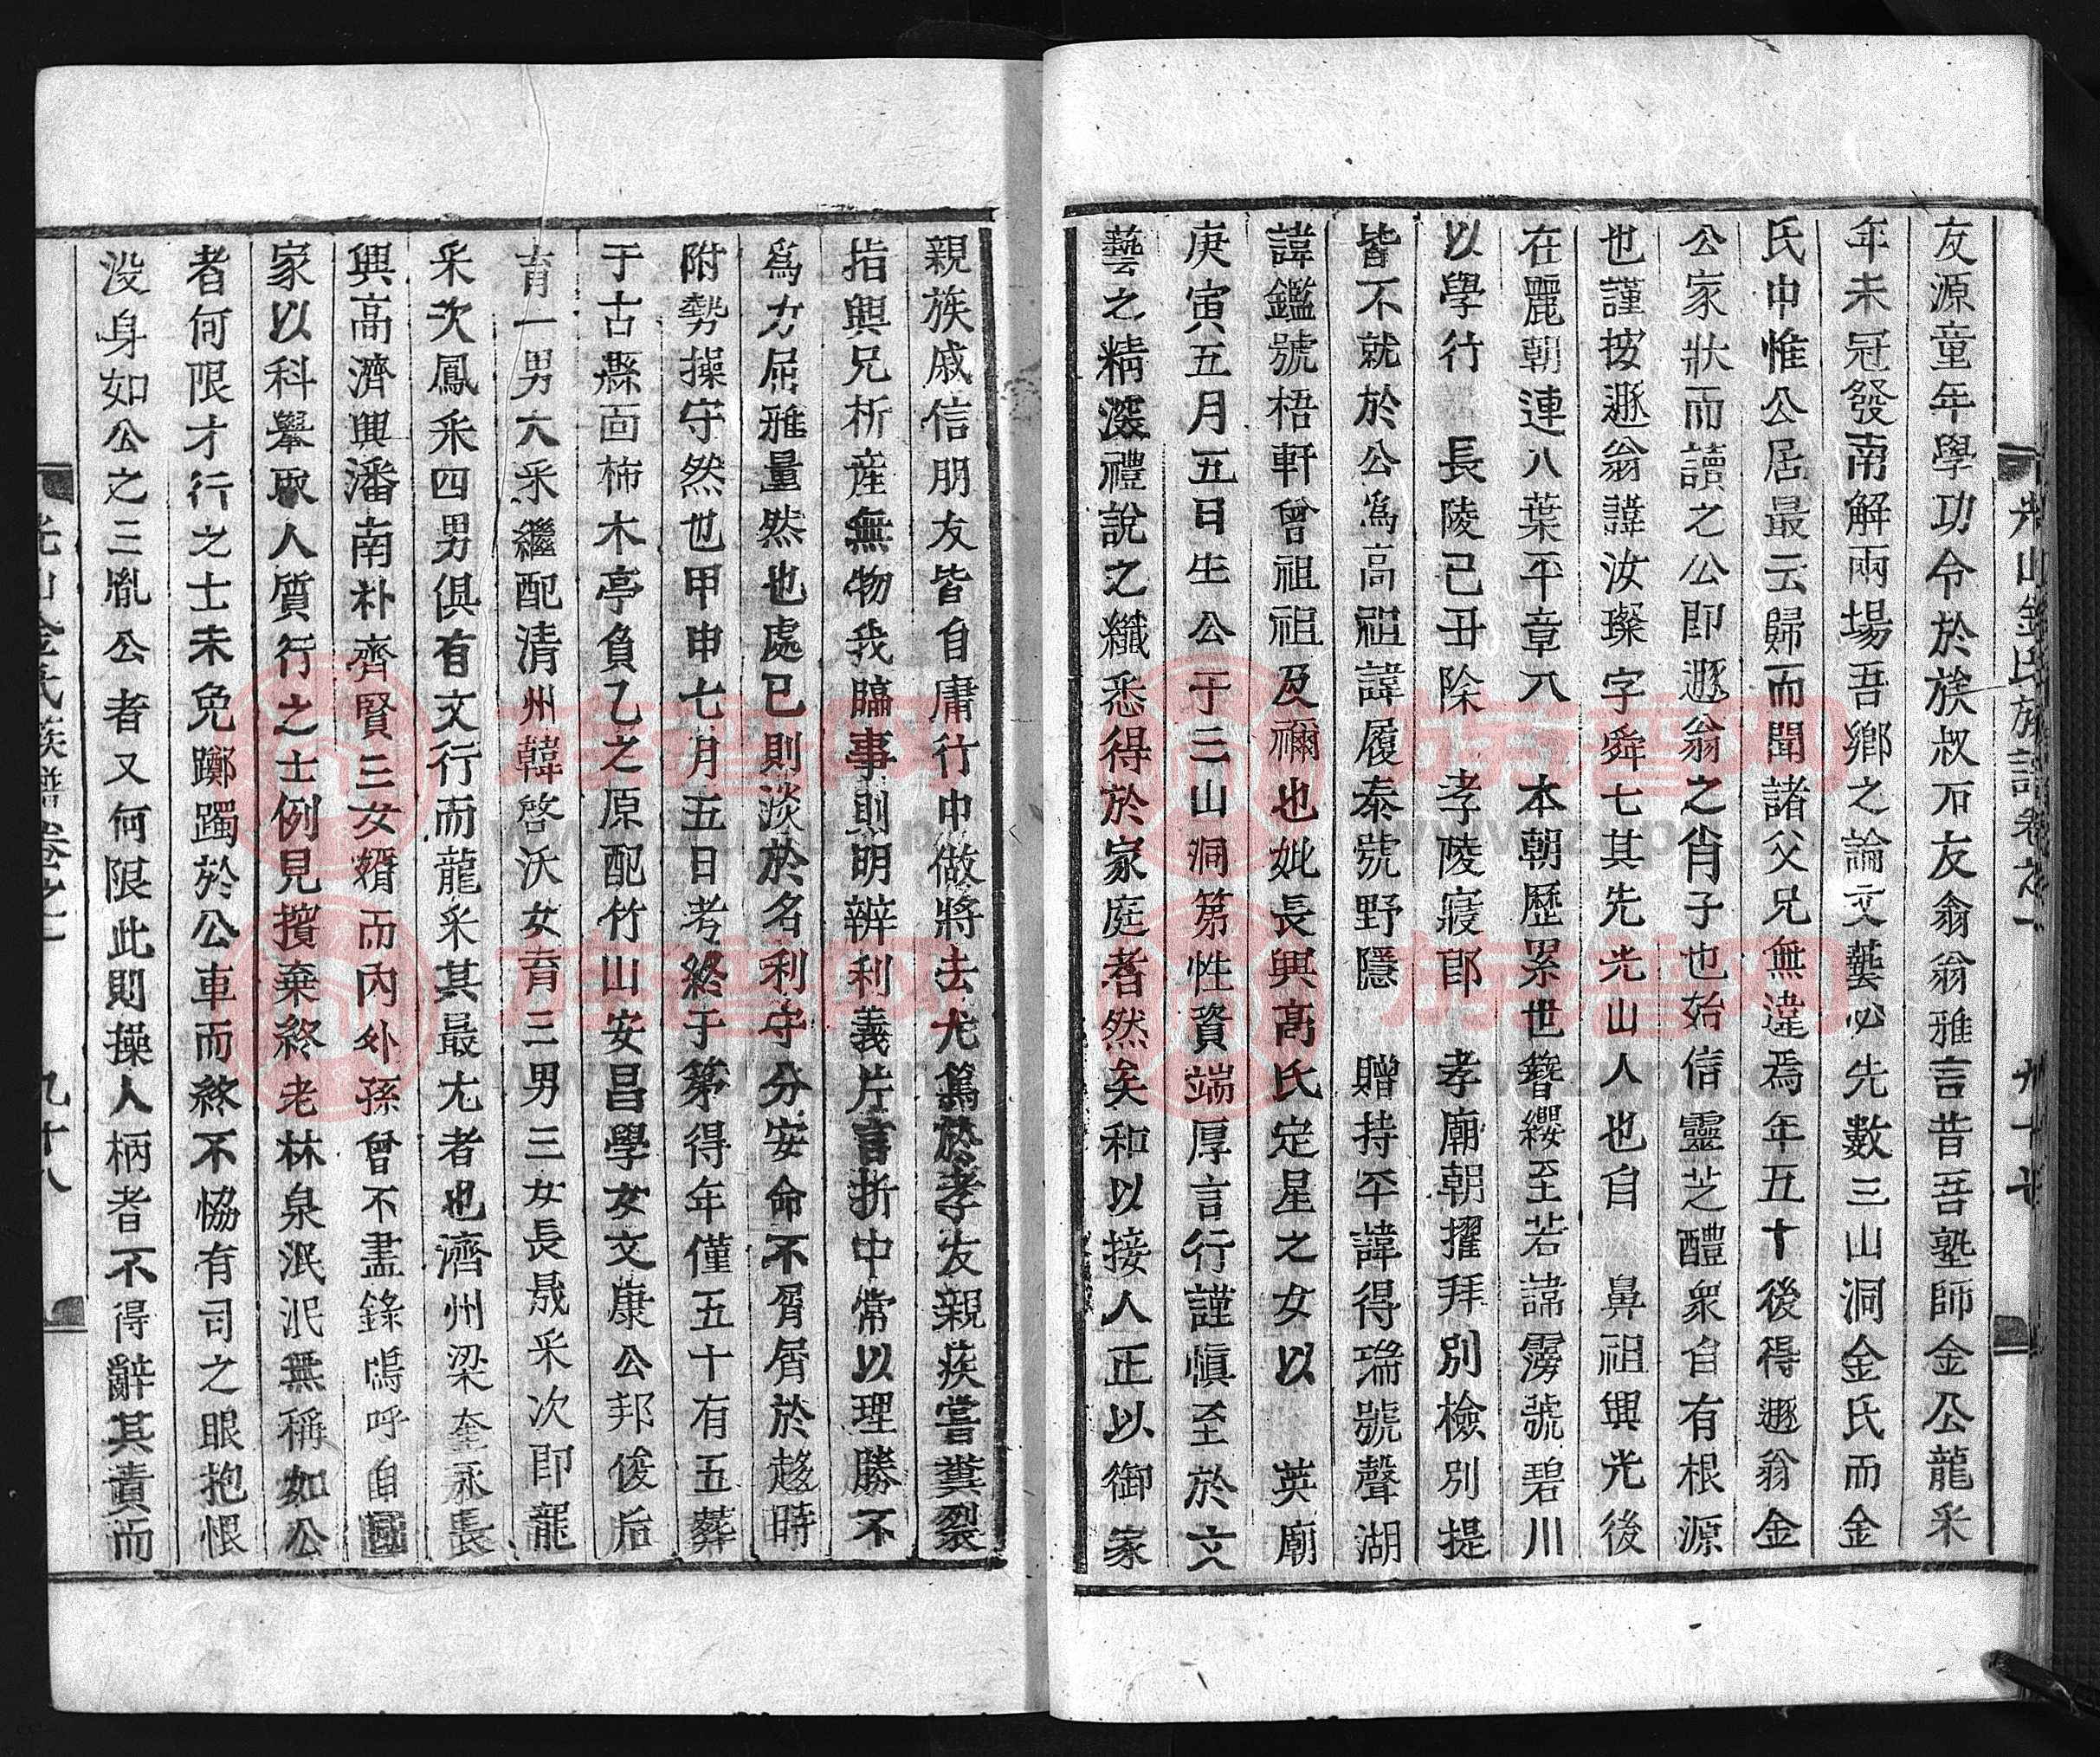 友源童年學功令於族叔石友翁翁雅言昔吾塾師金公龍采
年未冠發南解兩場吾鄉之論文藝必先數三山洞金氏而金
氏中惟公居最云歸而聞諸父兄無違焉年五十後得遯翁金
公家狀而讀之公即遯翁之肖子也始信靈芝醴泉自有根源
也謹按遯翁諱汝璨字舜七其先光山人也自　鼻祖興光後
在麗朝連八葉平章入　本朝歷累世簪纓至若諱霧號碧川
以學行　長陵己丑除　孝陵寢郎　孝廟朝擢拜別檢別提
皆不就於公爲高祖諱履泰號野隱　贈持平諱得瑞號聲湖
諱鑑號梧軒曾祖祖及禰也妣長興高氏定星之女以　英廟
庚寅五月五日生公于三山洞第性資端厚言行謹愼至於文
藝之精深禮說之纖悉得於家庭者然矣和以接人正以御家
親族戚信朋友皆自庸行中做將去尤篤於孝友親疾嘗糞裂
指與兄析産無物我臨事則明辨利義片言折中常以理勝不
爲力屈雅量然也處已則淡於名利守分安命不屑屑於趍時
附勢操守然也甲申七月五日考終于第得年僅五十有五葬
于古縣面柿木亭負乙之原配竹山安昌學女文康公邦俊后
育一男大采繼配清州韓啓沃女育三男三女長晟采次即龍
采次鳳采四男俱有文行而龍采其最尤者也濟州梁奎永長
興高濟興潘南朴齊賢三女婿而內外孫曾不盡錄嗚呼自國
家以科擧取人質行之士例見擯棄終老林泉泯泯無稱如公
者何限才行之士未免躑躅於公車而終不恊有司之眼抱恨
没身如公之三胤公者又何限此則操人柄者不得辭其責而
光山金氏族譜卷之一　九十八